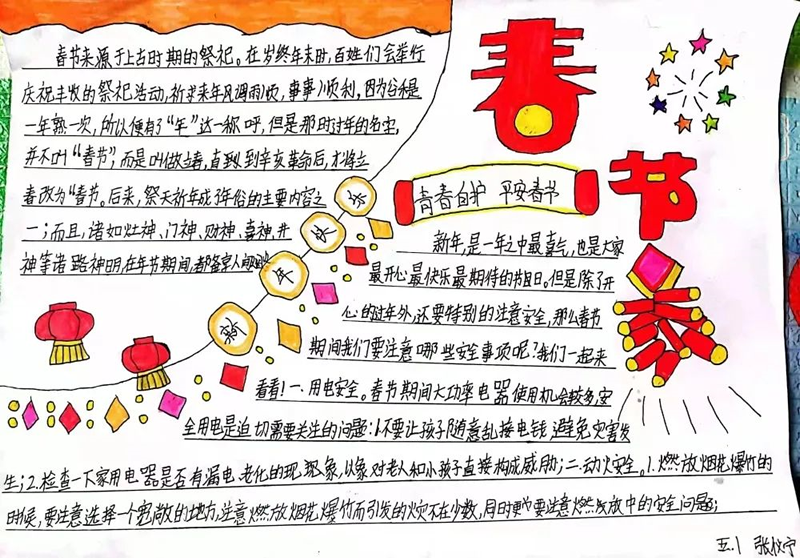 春节来源于上古时期的祭祀。在岁终年末时,百姓们会举行
庆祝丰收的祭祀活动,祈求来年风调雨顺,事事顺利,因为谷禾是
一年熟一次,所以便有了“年”这一称呼,但是那时过年的名字,
并不叫“春节”,而是叫做立春,直到到辛亥革命后,才将立
春改为“春节。后来,祭天祈年成了年俗的主要内容之
一;而且,诸如灶神、门神、财神、喜神、井
神等诸路神明,在年节期间,都备享人间
春
节
青春自护 平安春节
新年快乐
新年,是一年之中最喜气,也是大家
最开心最快乐最期待的节日。但是除了开
心的过年外,还要特别的注意安全,那么春节
期间我们要注意哪些安全事项呢?我们一起来
看看!一.用电安全。春节期间大功率电器使用机会较多,安
全用电是迫切需要关注的问题:1.不要让孩子随意乱接电线,避免灾害发
生;2.检查一下家用电器是否有漏电老化的现象,以象对老人和小孩子直接构成威胁;二.动火安全。1.燃放烟花爆竹的
时候,要注意选择一个宽敞的地方,注意燃放烟花爆竹而引发的火灾不在少数,同时更要注意燃放中的安全问题;
五.1 张仪宁